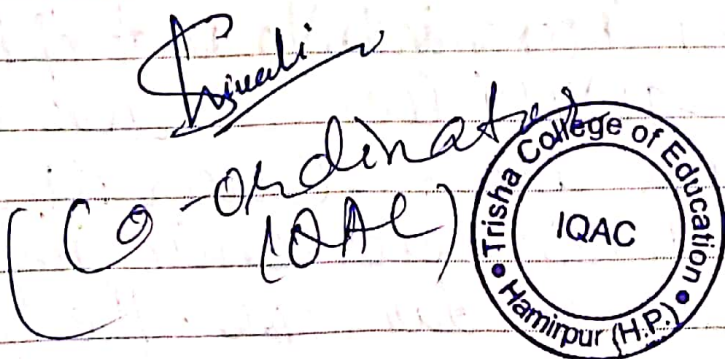 (Co-ordinator
IQAC)
Trisha College of Education
IQAC
Hamirpur (H.P.)